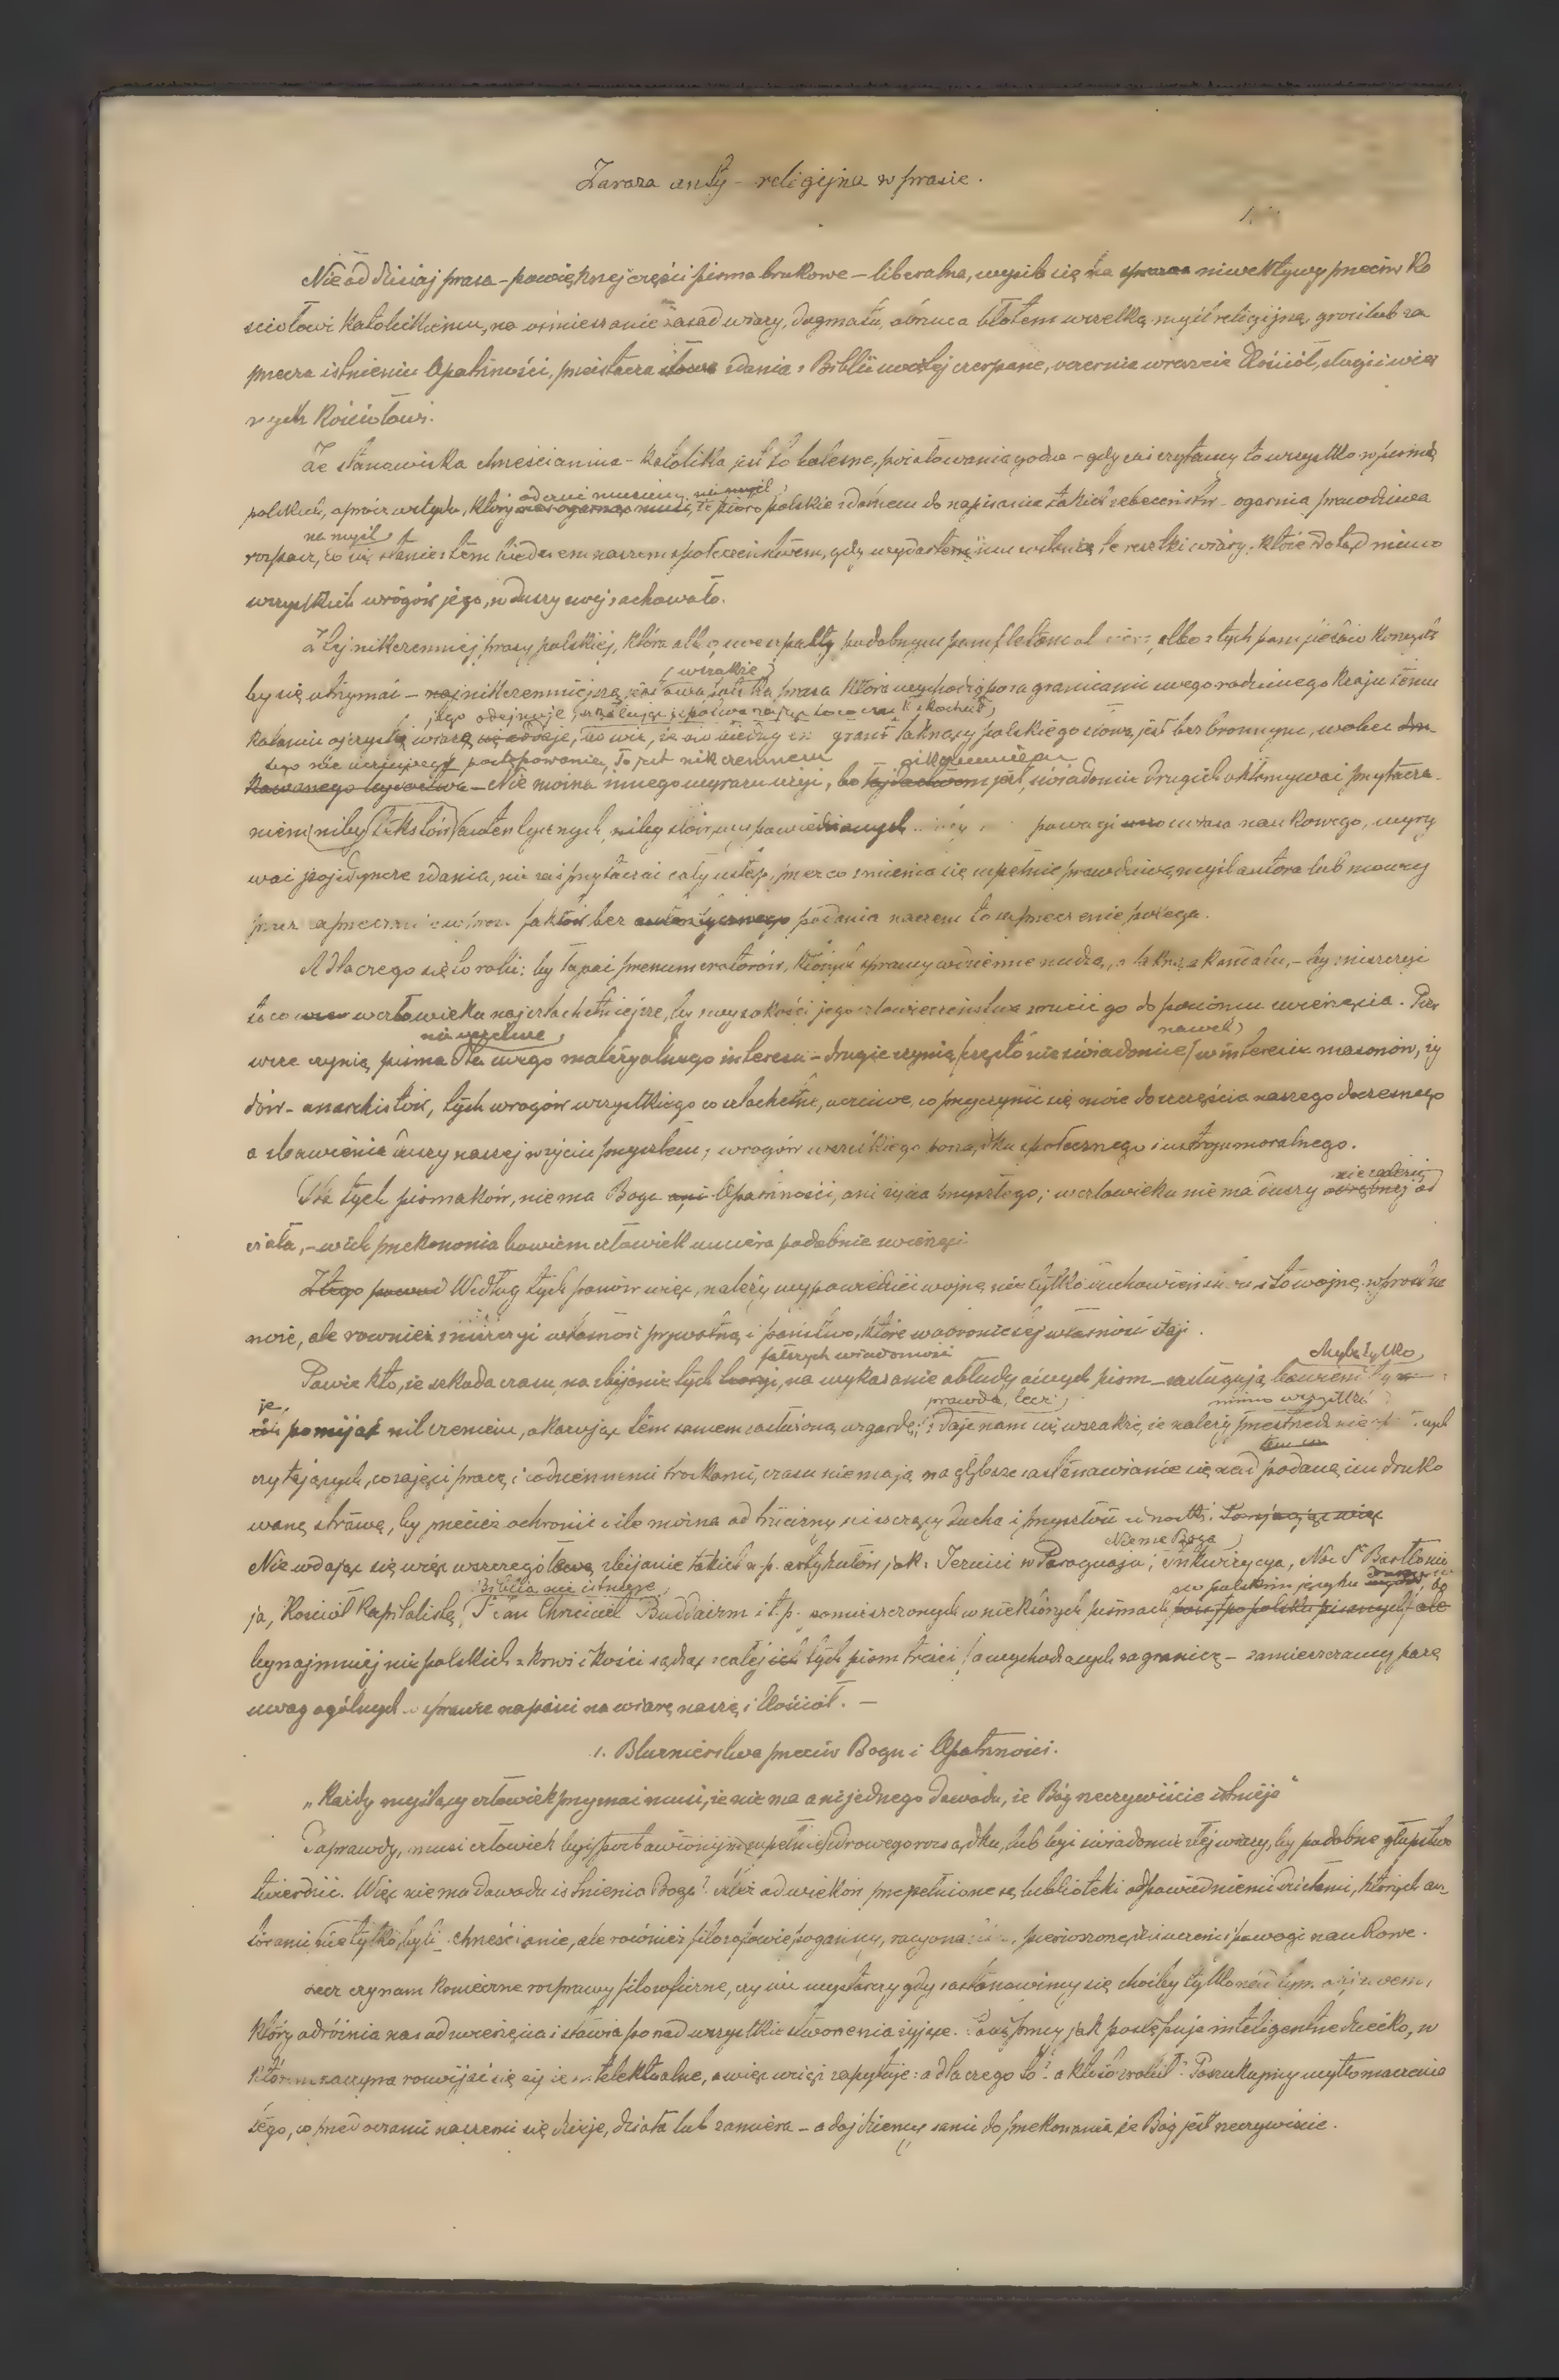 Zaraza anty-religijna w prasie.
Nie od dzisiaj prasa - po większej części pisma brukowe - liberalna, wysila się na niwektywy przeciw Ko
sciołowi Katolickiemu, na ośmieszanie zasad wiary, dogmatu, obrzuca błotem wszelką myśl religijną, grozi lub za
przecza istnieniu Opatrzności, przeistacza słowa zdania z Biblii świętej czerpane, oczernia wreszcie Kościół, sługi i wier
nych Kościołowi.
Ze stanowiska chrześcianina - Katolika jest to bolesne, pożałowania godne - gdy zaś czytamy to wszystko w pismie
odczuć musimy, na myśl,
polskiem, oprócz wstydu, który nas ogarnąć musi, że pióro polskie zdolnem do napisania takich bezeceństw - ogarnia prawdziwa
na myśl
rozpacz, co się stanie z tem biednem naszem społeczeństwem, gdy wydartemi mu zostaną te resztki wiary, które dotąd mimo
wszystkich wrogów jego, w duszy swej zachowało.
Z tej nikczemnej prasy polskiej, która albo swe szpalty podobnym pamfletom albo z tych pamfletów korzysta
wszakże
by się utrzymać - najnikczemniejszą jest owa prasa która wychodzi poza granicami swego rodzinnego Kraju temu
jego odejmuje
Krajowi ojczystą wiarę, bo wie, że ów biedny granic łaknący polskiego słowa, jest bezbronnym, wobec dru
tego nie uczciwego postępowania, To jest nikczemnem nikczemnem
kowanego łajdactwa - Nie można innego wyrazu użyć, bo łajdactwem jest, świadomie drugich okłamywać przytacza
niem niby tekstów autentycznych, niby słów wypowiedzianych powagi naukowego, wyry
wać pojedyncze zdania, nie zaś przytaczać cały ustęp, przez co zmienia się zupełnie prawdziwą myśl autora lub mowcy
przez zaprzeczanie faktów bez autentycznego podania naczem to zaprzeczenie polega.
A dlaczego się to robi: by łapać prenumeratorów, których sprawy codzienne nudzą, a łakną skandalu, - by zniszczyć
to co w człowieku najszlachetniejsze, by z wysokości jego człowieczeństwa zrzucić go do poziomu zwierzęcia. Pier
nawet
wsze czynią pisma dla swego materyalnego interesu - drugie czynią często nieświadomie w interesie masonów, ży
dów - anarchistów, tych wrogów wszystkiego co szlachetne, uczciwe, co przyczynić się może do szczęścia naszego doczesnego
a zbawienia duszy naszej w życiu przyszłem; wrogów wszelkiego porządku społecznego i ustroju moralnego.
niezależnej
Dla tych pismaków, niema Boga ani Opatrzności, ani życia przyszłego; w człowieku niema duszy odrębnej od
ciała, - w ich przekonaniu bowiem człowiek umiera podobnie zwierzęciu
Z tego powodu Według tych panów więc, należy wypowiedzieć wojnę nie tylko duchowieństwu
ale również zniszczyć własność prywatną i państwo, które w obronie tej własności staje.
fałszywych wiadomości chyba tylko
Powie kto, że szkoda czasu, na zbijanie tych teoryi, na wykazanie obłudy owych pism - zasługują bowiem
je, prawda, lecz mimo wszystko
pomijać milczeniem, okazując tem samem zasłużoną wzgardę; zdaje nam się wszakże, że należy przestrzedz
czytających, co zajęci pracą i codziennemi troskami, czasu nie mają na głębsze zastanawianie się nad podaną im druko
waną strawę, by przecież ochronić o ile można od trucizny niszczącej ducha i przyszłość jednostki.
Niema Boga
Nie wdając się więc w szczegółowe zbijanie takich n.p. artykułów jak: Jezuici w Paragwaju; inkwizycya, Noc Sgo Bartłomie
Biblia nie istnieje w polskim języku
ja, Kościół Kapitalistą, Jean Chrzciciel Buddaizm i t.p. zamieszczonych w niektórych pismach
bynajmniej nie polskich z krwi i kości sądząc z całej ich tych pism treści a wychodzących zagranicą - zamieszczamy parę
uwag ogólnych w sprawie napaści na wiarę naszą i Kościół. -
1. Bluznierstwa przeciw Bogu i Opatrzności.
„Każdy myślący człowiek przyznać musi, że nie ma ani jednego dowodu, że Bóg rzeczywiście istnieje"
Zaprawdę, musi człowiek być pozbawionym zupełnie zdrowego rozsądku, lub być świadomie złej wiary, by podobne głupstwo
twierdzić. Więc niema dowodu istnienia Boga? Toż od wieków przepełnione są biblioteki odpowiedniemi dziełami, których au
torami nie tylko byli chrześcianie, ale również filozofowie pogańscy, racyonaliści, pierwszorzędni uczeni i powagi naukowe.
Lecz czy nam konieczne rozprawy filozoficzne, czy nie wystarczy gdy zastanowimy się choćby tylko nad tym
który odróżnia nas od zwierzęcia i stawia ponad wszystkie stworzenia żyjące. Patrzmy jak postępuje inteligentne dziecko, w
którem zaczyna rozwijać się życie intelektualne, a więc wciąż zapytuje: a dlaczego to? a kto to zrobił? Poszukajmy wytłomaczenia
tego, co przed oczami naszemi się dzieje, działa lub zamiera - a dojdziemy sami do przekonania że Bóg jest rzeczywiście.